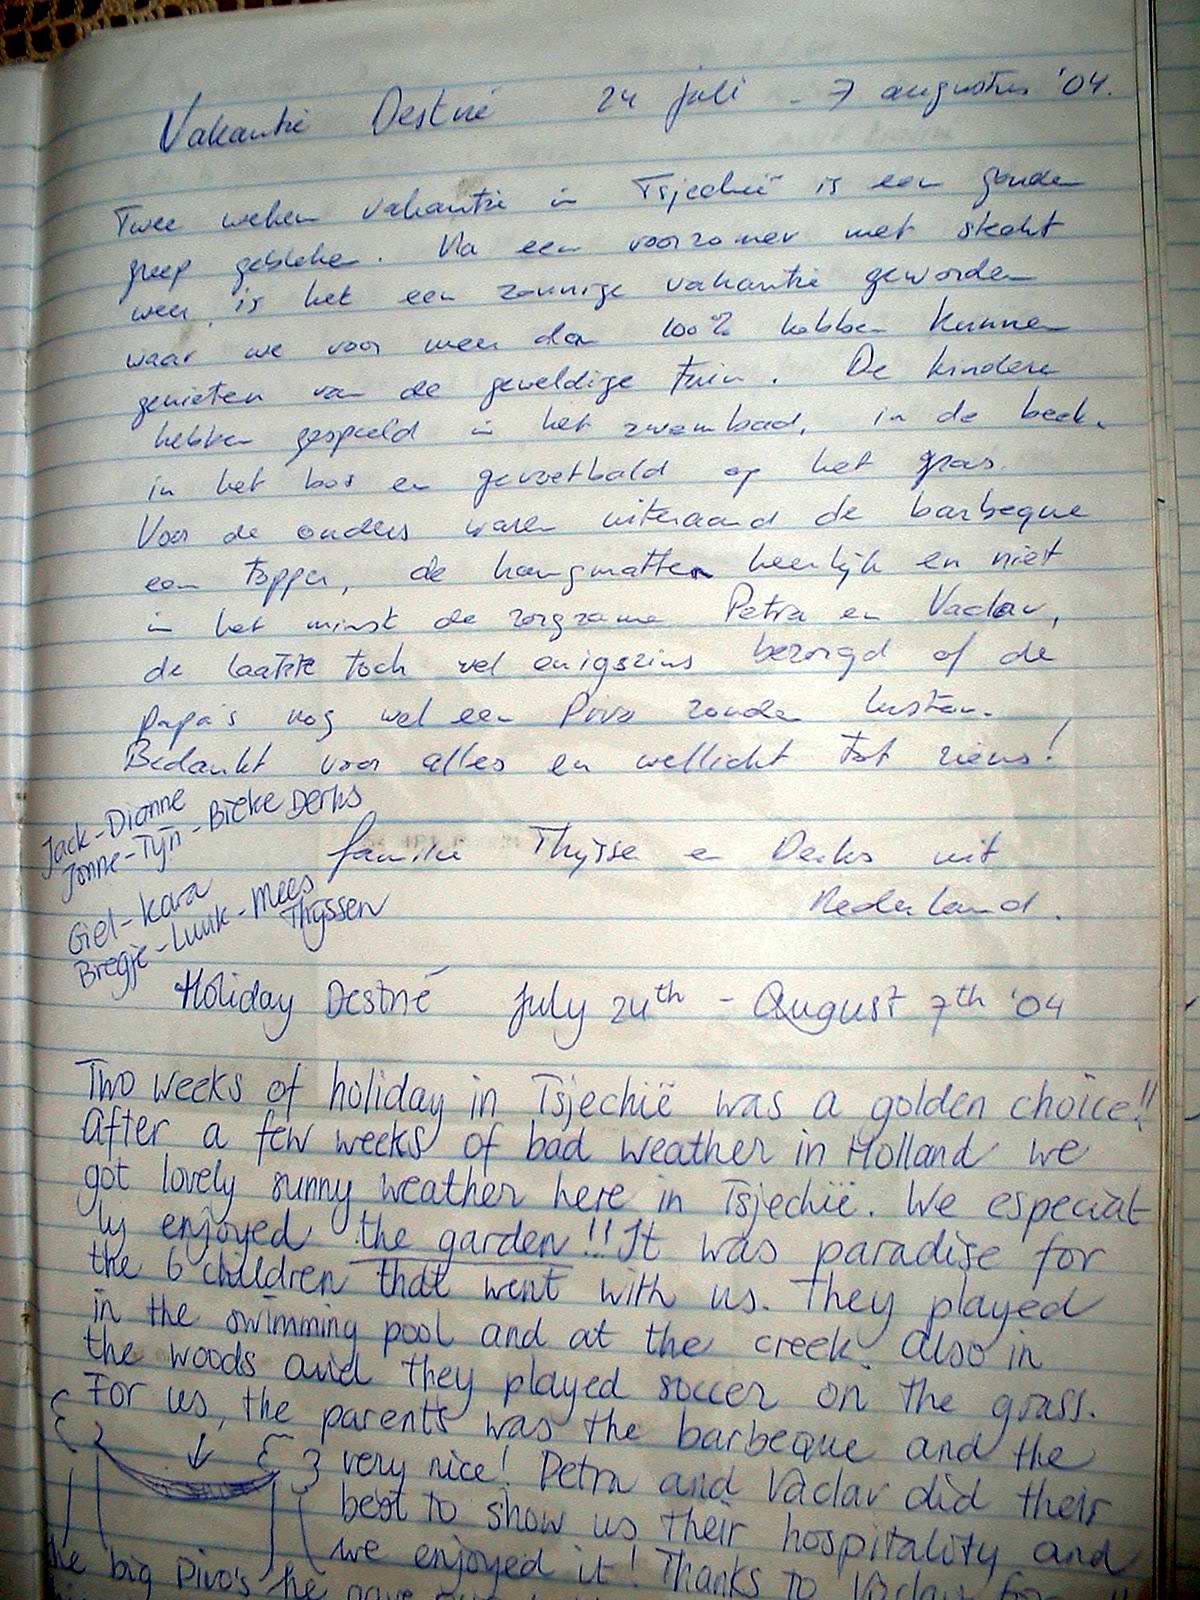 Vakantie Destné 24 juli - 7 augustus '04.
Twee weken vakantie in Tsjechië is een gouden
greep gebleken. Na een voorzomer met slecht
weer, is het een zonnige vakantie geworden
waar we voor meer dan 100% hebben kunnen
genieten van de geweldige tuin. De kinderen
hebben gespeeld in het zwembad, in de beek,
in het bos en gevoetbald op het gras.
Voor de ouders waren uiteraard de barbeque
een topper, de hangmatten heerlijk en niet
in het minst de zorgzame Petra en Vaclav,
de laatste toch wel enigszins bezorgd of de
papa's nog wel een Pivo zouden lusten.
Bedankt voor alles en wellicht tot ziens!
Jack-Dianne
Jonne-Tijn-Bieke Derks
familie Thijsse en Derks uit
Nederland.
Giel-Kara
Bregje-Luuk-Mees
Thijssen
Holiday Destné July 24th - August 7th '04
Two weeks of holiday in Tsjechië was a golden choice!!
After a few weeks of bad weather in Holland we
got lovely sunny weather here in Tsjechië. We especial
ly enjoyed the garden!! It was paradise for
the 6 children that went with us. They played
in the swimming pool and at the creek. Also in
the woods and they played soccer on the grass.
For us, the parents was the barbeque and the
very nice! Petra and Vaclav did their
best to show us their hospitality and
we enjoyed it! Thanks to Vaclav for
the big Pivo's he gave